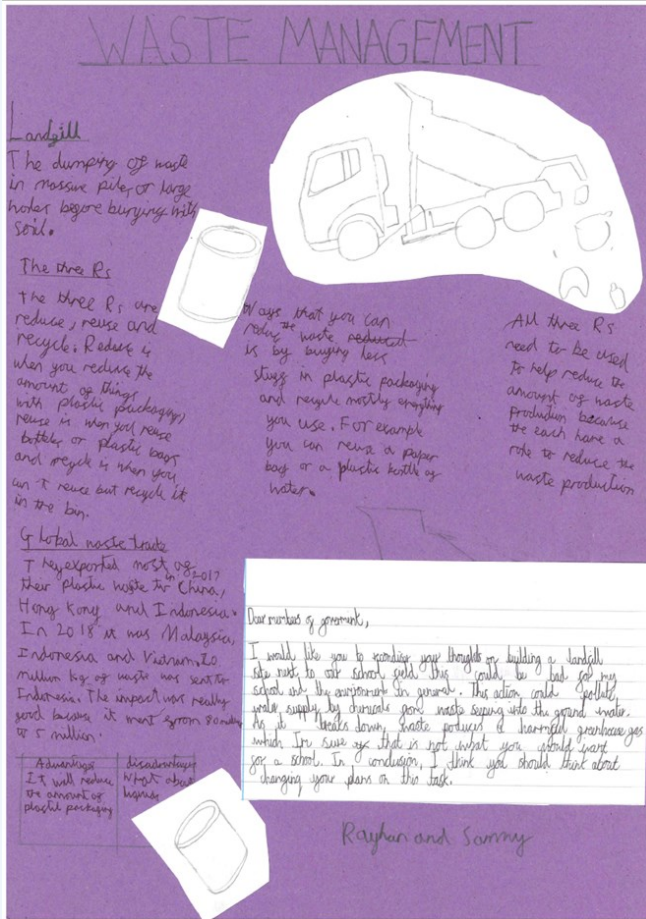 WASTE MANAGEMENT
Landfill
The dumping of waste
in massive piles or large
holes before burying with
soil.
The three Rs
The three Rs are
reduce, reuse and
recycle. Reduce is
when you reduce the
amount of things
with plastic packaging,
reuse is when you reuse
bottles or plastic bags
and recycle is when you
can't reuse but recycle it
in the bin.
Ways that you can
reduce the waste reduced
is by buying less
stuff in plastic packaging
and recycle mostly everything
you use. For example
you can reuse a paper
bag or a plastic bottle of
water.
All three Rs
need to be used
to help reduce the
amount of waste
production because
the each have a
role to reduce the
waste production
Global waste trade
They exported most of
their plastic waste in 2017 China,
Hong Kong and Indonesia.
In 2018 it was Malaysia,
Indonesia and Vietnam.
million kg of waste was sent to
Indonesia. The impact was really
good because it went from 80
to 5 million.
Advantages
It will reduce
the amount of
plastic packaging
disadvantages
What about
Dear members of goverment,
I would like you to your thoughts on building a landfill
site next to our school field this could be bad for my
school and the in general. This action could pollute
water supply by chemicals from waste seeping into the ground water.
As it breaks down, waste produces a harmful greenhouse gases
which Im sure of that is not what you would want
for a school. In conclusion, I think you should think about
changing your plans on this task.
Rayhan and Sammy